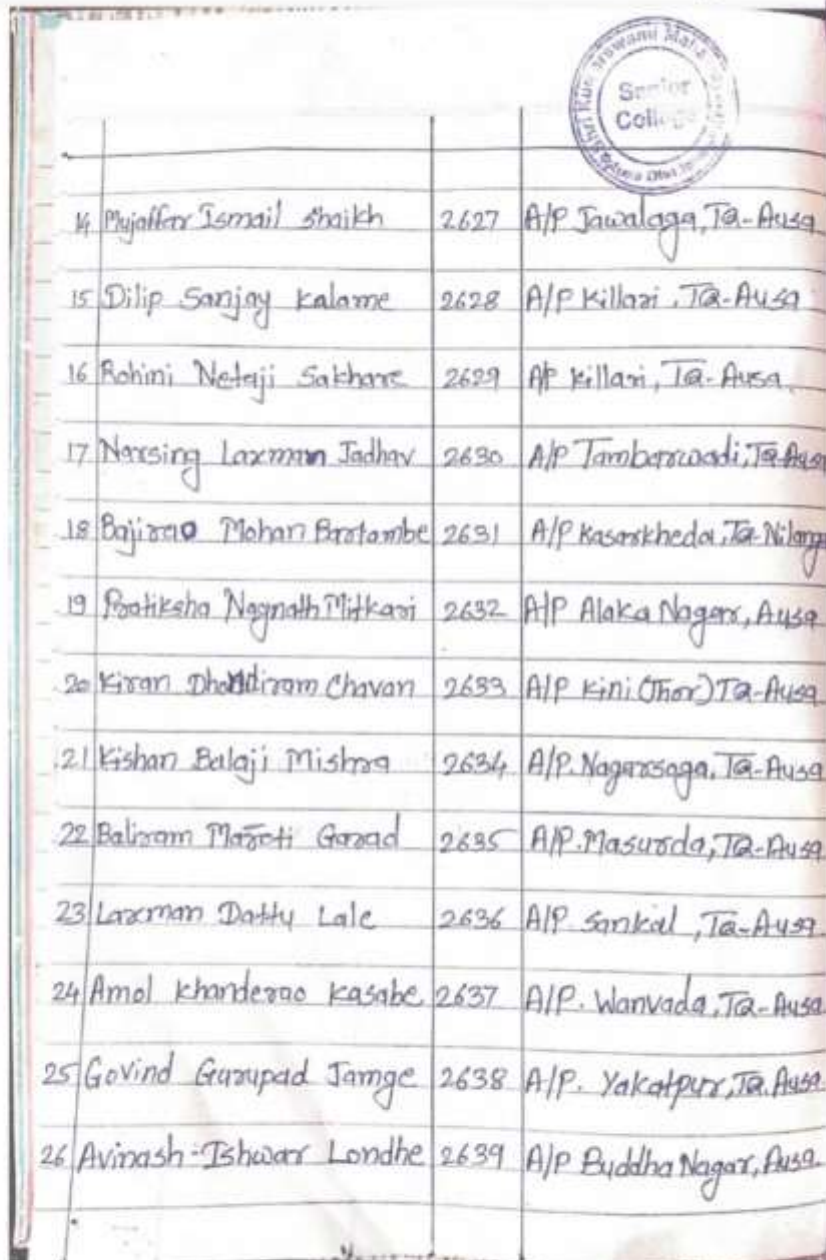 Senior
College
14 Mujaffar Ismail Shaikh 2627 A/P Jawalaga, TQ-Ausa
15 Dilip Sanjay Kalame 2628 A/P Killari, TQ-Ausa
16 Rohini Netaji Sakhare 2629 A/P Killari, TQ-Ausa.
17 Narsing Laxman Jadhav 2630 A/P Tambarwadi, TQ-Ausa
18 Bajirao Mohan Bartambe 2631 A/P Kasarkheda, TQ-Nilanga
19 Pratiksha Nagnath Mitkari 2632 A/P Alaka Nagar, Ausa
20 Kiran Dhondiram Chavan 2633 A/P Kini (Thor) TQ-Ausa
21 Kishan Balaji Mishra 2634 A/P. Nagarsoga, TQ-Ausa
22 Baliram Maroti Garad 2635 A/P. Masurda, TQ-Ausa
23 Laxman Dattu Lale 2636 A/P. Sankal, TQ-Ausa
24 Amol Khanderao Kasabe 2637 A/P. Wanvada, TQ-Ausa
25 Govind Gurupad Jamge 2638 A/P. Yakatpur, TQ. Ausa
26 Avinash Ishwar Londhe 2639 A/P Buddha Nagar, Ausa